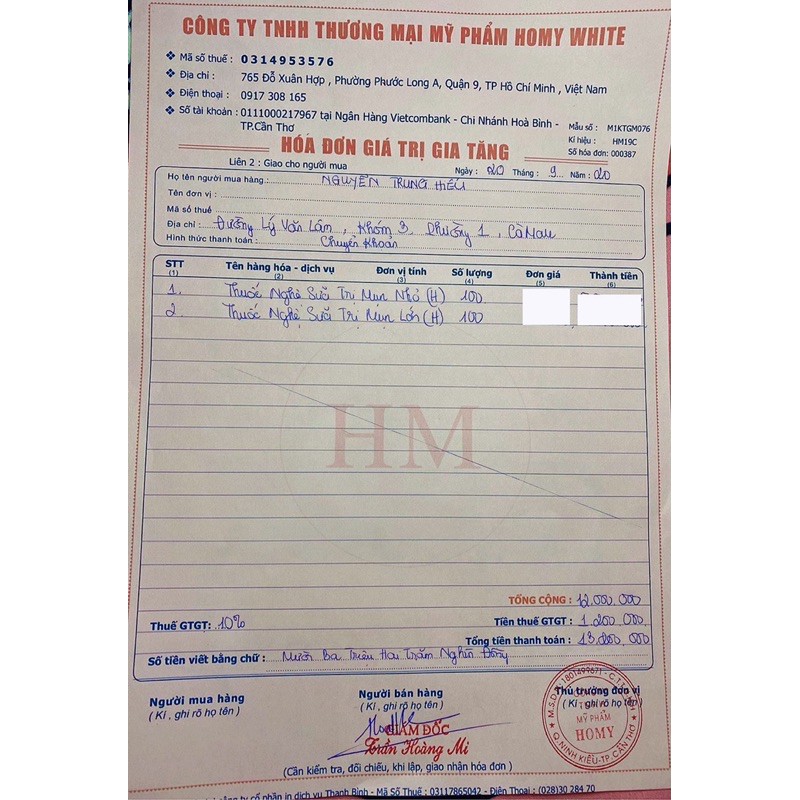 CÔNG TY TNHH THƯƠNG MẠI MỸ PHẨM HOMY WHITE
❖ Mã số thuế : 0314953576
❖ Địa chỉ : 765 Đỗ Xuân Hợp , Phường Phước Long A, Quận 9, TP Hồ Chí Minh , Việt Nam
❖ Điện thoại : 0917 308 165
❖ Số tài khoản : 0111000217967 tại Ngân Hàng Vietcombank - Chi Nhánh Hoà Bình - TP.Cần Thơ
Mẫu số : M1KTGM076
Kí hiệu : HM19C
Số hóa đơn: 000387
HÓA ĐƠN GIÁ TRỊ GIA TĂNG
Liên 2 : Giao cho người mua
Ngày : 20 Tháng : 9 Năm : 20
Họ tên người mua hàng : NGUYỄN TRUNG HIẾU
Tên đơn vị :
Mã số thuế
Địa chỉ : Đường Lý Văn Lâm , Khóm 3, Phường 1, Cà Mau
Hình thức thanh toán : Chuyển Khoản
STT Tên hàng hóa - dịch vụ Đơn vị tính Số lượng Đơn giá Thành tiền
(1) (2) (3) (4) (5) (6)
1. Thuốc Nghệ Sữa Trị Mụn Nhỏ (H) 100
2. Thuốc Nghệ Sữa Trị Mụn Lớn (H) 100
HM
TỔNG CỘNG : 12.000.000
Thuế GTGT: 10% Tiền thuế GTGT : 1.200.000
Tổng tiền thanh toán : 13.200.000
Số tiền viết bằng chữ : Mười Ba Triệu Hai Trăm Nghìn Đồng
Người mua hàng Người bán hàng Thủ trưởng đơn vị
( Kí , ghi rõ họ tên ) ( Kí , ghi rõ họ tên ) ( Kí , ghi rõ họ tên )
GIÁM ĐỐC
Trần Hoàng Mi
MỸ PHẨM
HOMY
Q.NINH KIỀU-TP.CẦN THƠ
(Cần kiểm tra, đối chiếu, khi lập, giao nhận hóa đơn )
công ty cổ phần in dịch vụ Thanh Bình - Mã Số Thuế : 03117865042 - Điện Thoại : (028)30 284 70